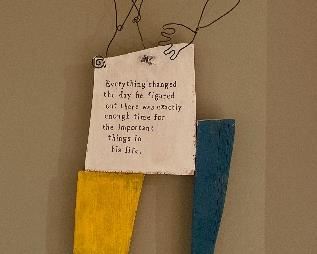 Everything changed
the day he figured
out there was exactly
enough time for
the important
things in
his life.